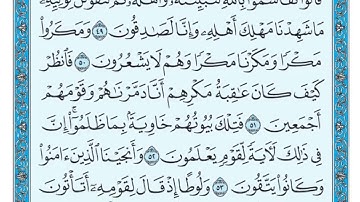 قَالُوا۟ تَقَاسَمُوا۟ بِٱللَّهِ لَنُبَيِّتَنَّهُۥ وَأَهْلَهُۥ ثُمَّ لَنَقُولَنَّ لِوَلِيِّهِۦ
مَا شَهِدْنَا مَهْلِكَ أَهْلِهِۦ وَإِنَّا لَصَٰدِقُونَ ٤٩ وَمَكَرُوا۟
مَكْرًا وَمَكَرْنَا مَكْرًا وَهُمْ لَا يَشْعُرُونَ ٥٠ فَٱنظُرْ
كَيْفَ كَانَ عَٰقِبَةُ مَكْرِهِمْ أَنَّا دَمَّرْنَٰهُمْ وَقَوْمَهُمْ
أَجْمَعِينَ ٥١ فَتِلْكَ بُيُوتُهُمْ خَاوِيَةًۢ بِمَا ظَلَمُوٓا۟ إِنَّ
فِى ذَٰلِكَ لَءَايَةً لِّقَوْمٍ يَعْلَمُونَ ٥٢ وَأَنجَيْنَا ٱلَّذِينَ ءَامَنُوا۟
وَكَانُوا۟ يَتَّقُونَ ٥٣ وَلُوطًا إِذْ قَالَ لِقَوْمِهِۦٓ أَتَأْتُونَ